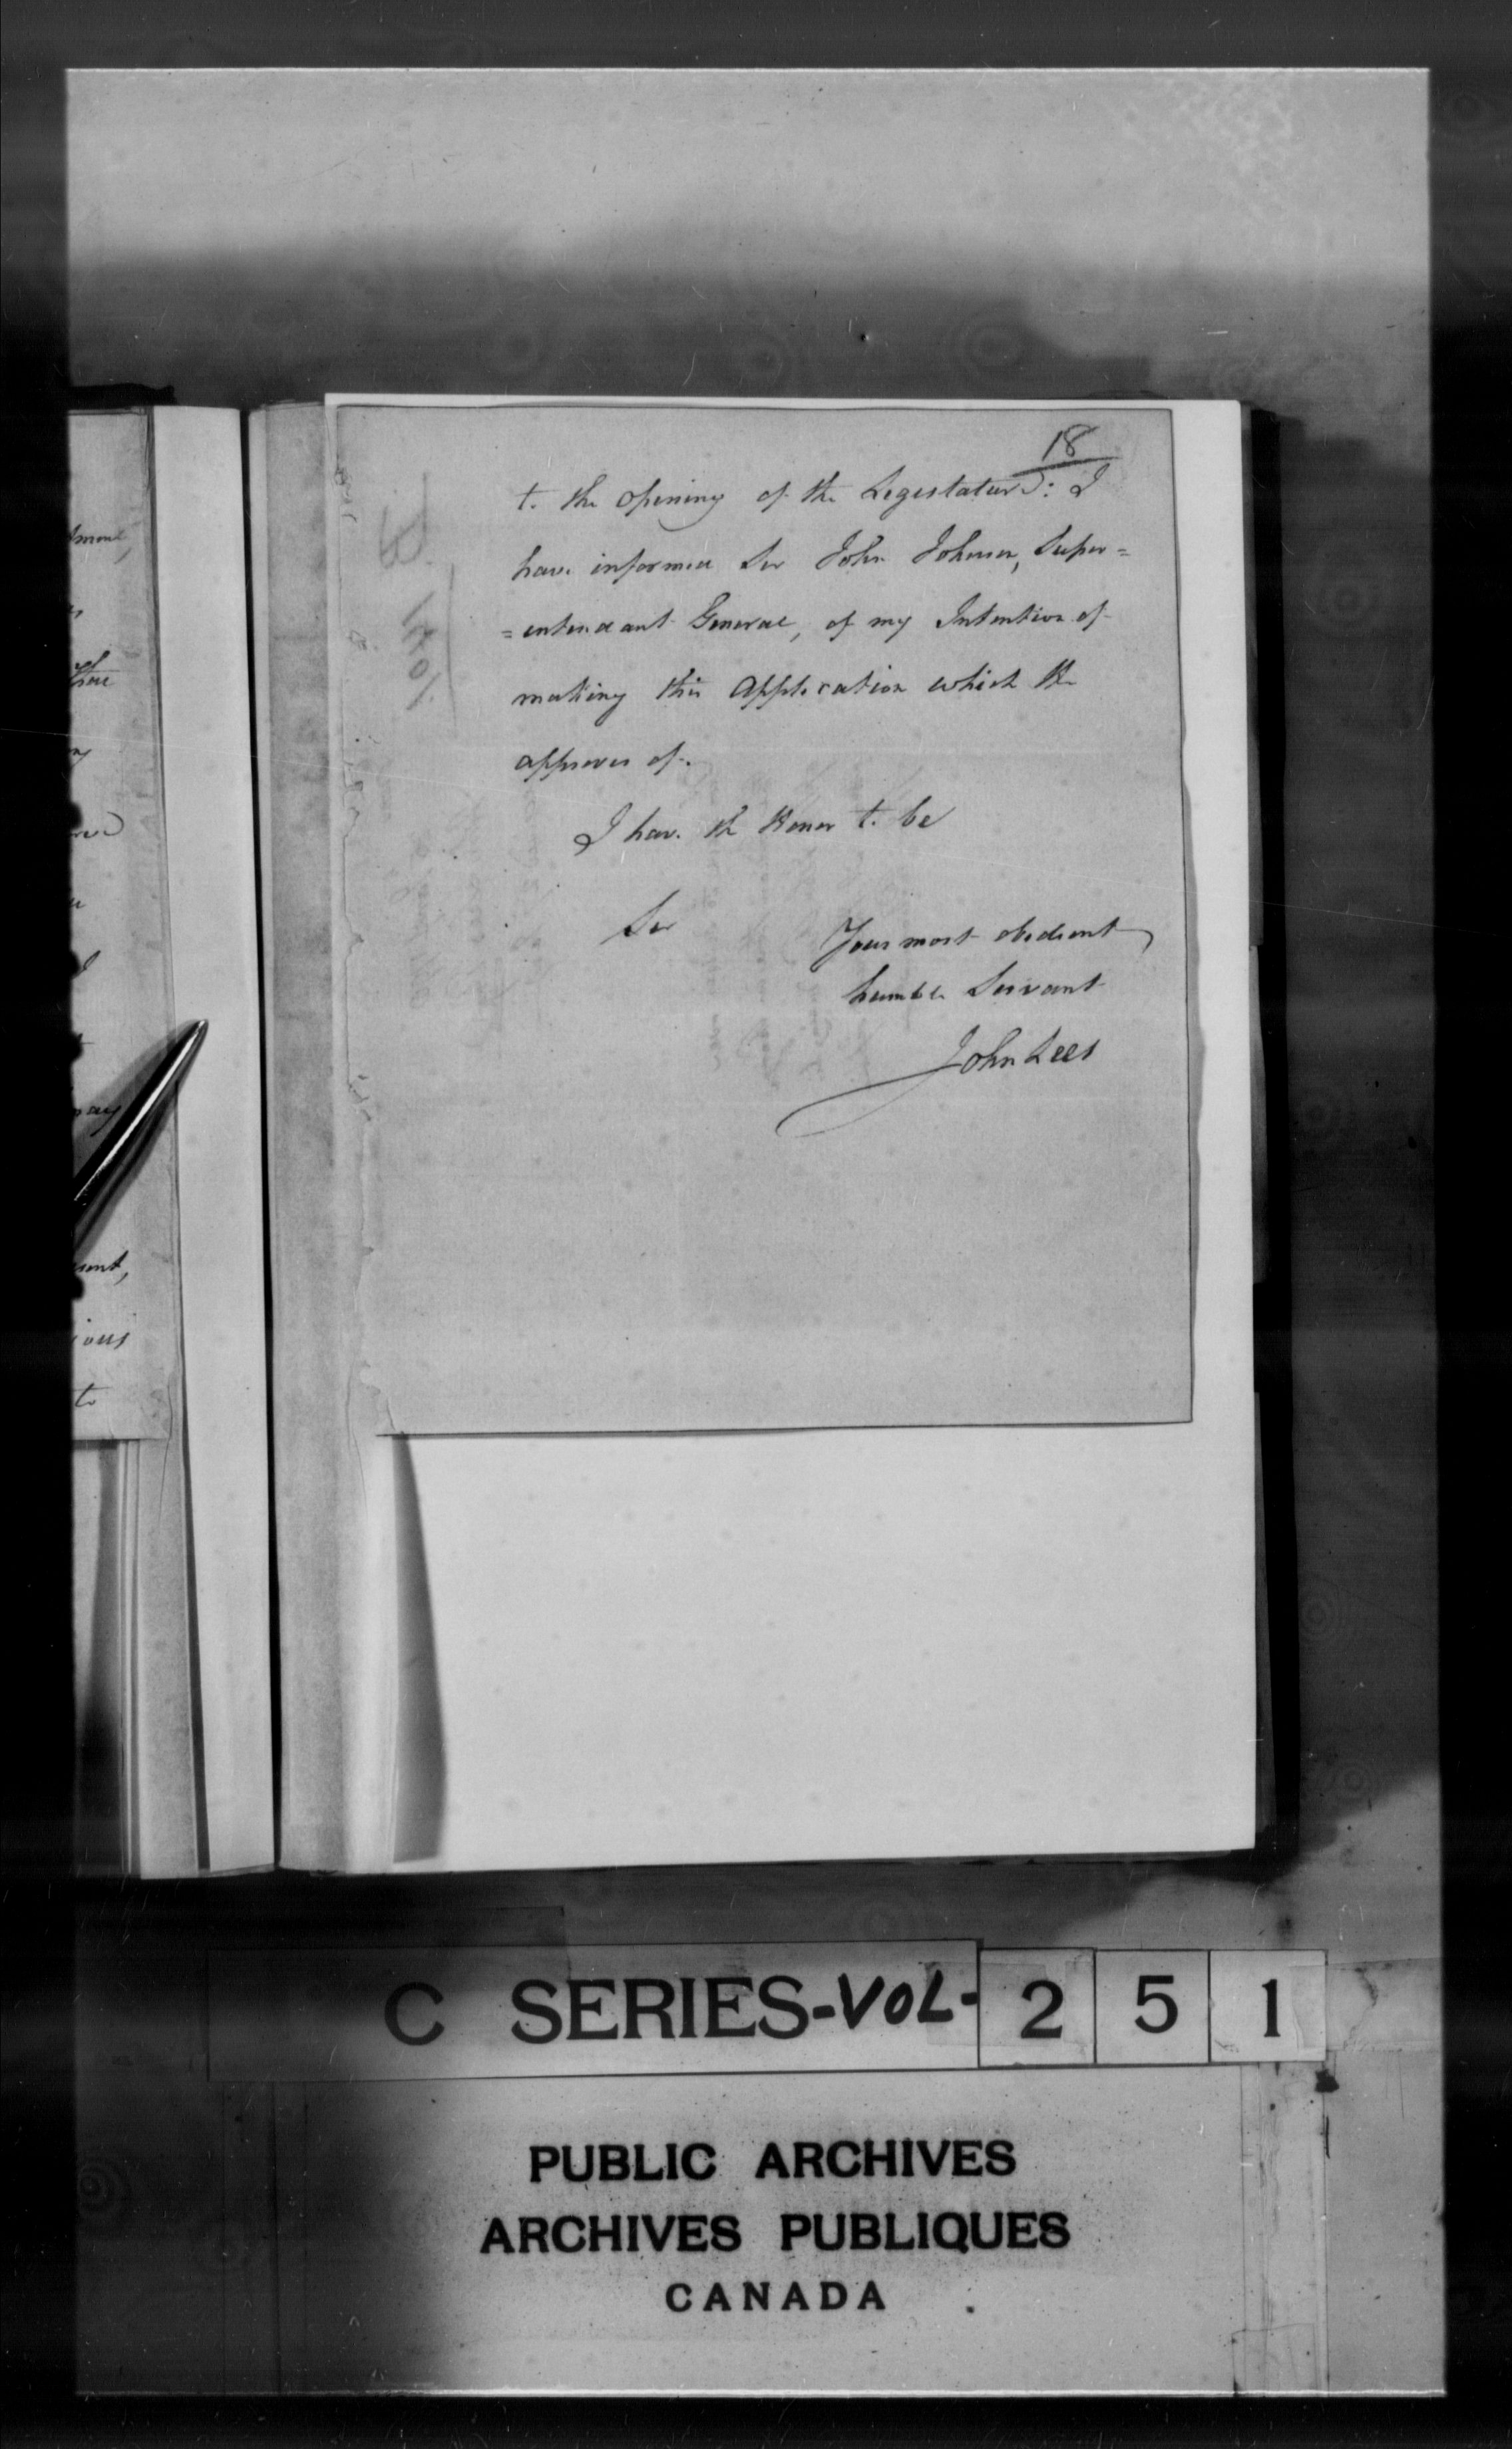 18
to the opening of the Legislature: I
have informed Sir John Johnson, Super=
=entendant General, of my Intention of
making this Application which He
approves of.
I have the Honor to be
Sir
Your most obedient
humble Servant
John Lees
ment,
may
ious
to
C SERIES-VOL-251
PUBLIC ARCHIVES
ARCHIVES PUBLIQUES
CANADA